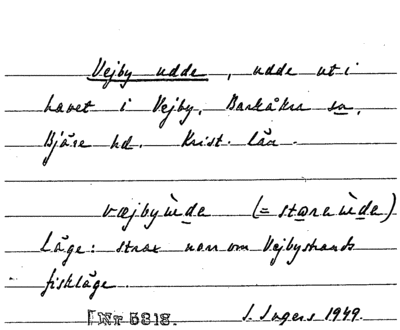 Vejby udde, udde ut i
havet i Vejby, Barkåkra sn,
Bjäre hd. Krist. län.
væjbyùdə (= størə ùdə)
Läge: strax norr om Vejbystrands
fiskläge.
[Nr 5818.
I. Ingers 1949.